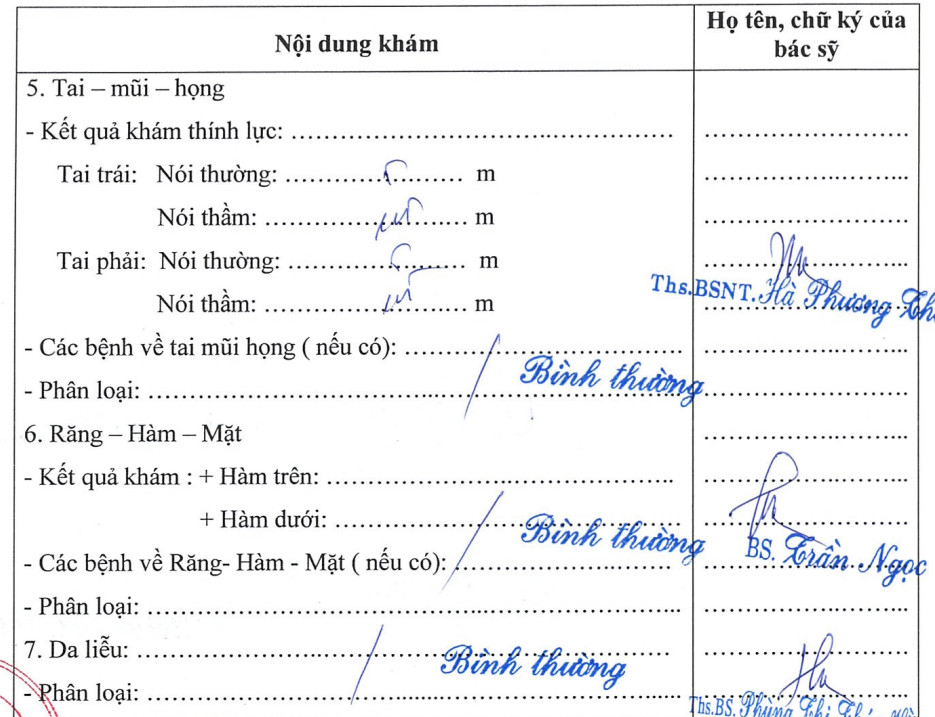 Nội dung khám
Họ tên, chữ ký của
bác sỹ
5. Tai – mũi – họng
- Kết quả khám thính lực: ……………………………………………
Tai trái: Nói thường: …………………… m
Nói thầm: …………………… m
Tai phải: Nói thường: …………………… m
Ths.BSNT. Hà Phương
Nói thầm: …………………… m
- Các bệnh về tai mũi họng ( nếu có): ………………………………
Bình thường
- Phân loại: ……………………………………………………………
6. Răng – Hàm – Mặt
- Kết quả khám : + Hàm trên: …………………………………………
+ Hàm dưới: …………………………………………
Bình thường
BS. Trần Ngọc
- Các bệnh về Răng- Hàm - Mặt ( nếu có): …………………………
- Phân loại: ……………………………………………………………
7. Da liễu: ……………………………………………………………
Bình thường
- Phân loại: ……………………………………………………………
Ths.BS. Phùng Thị